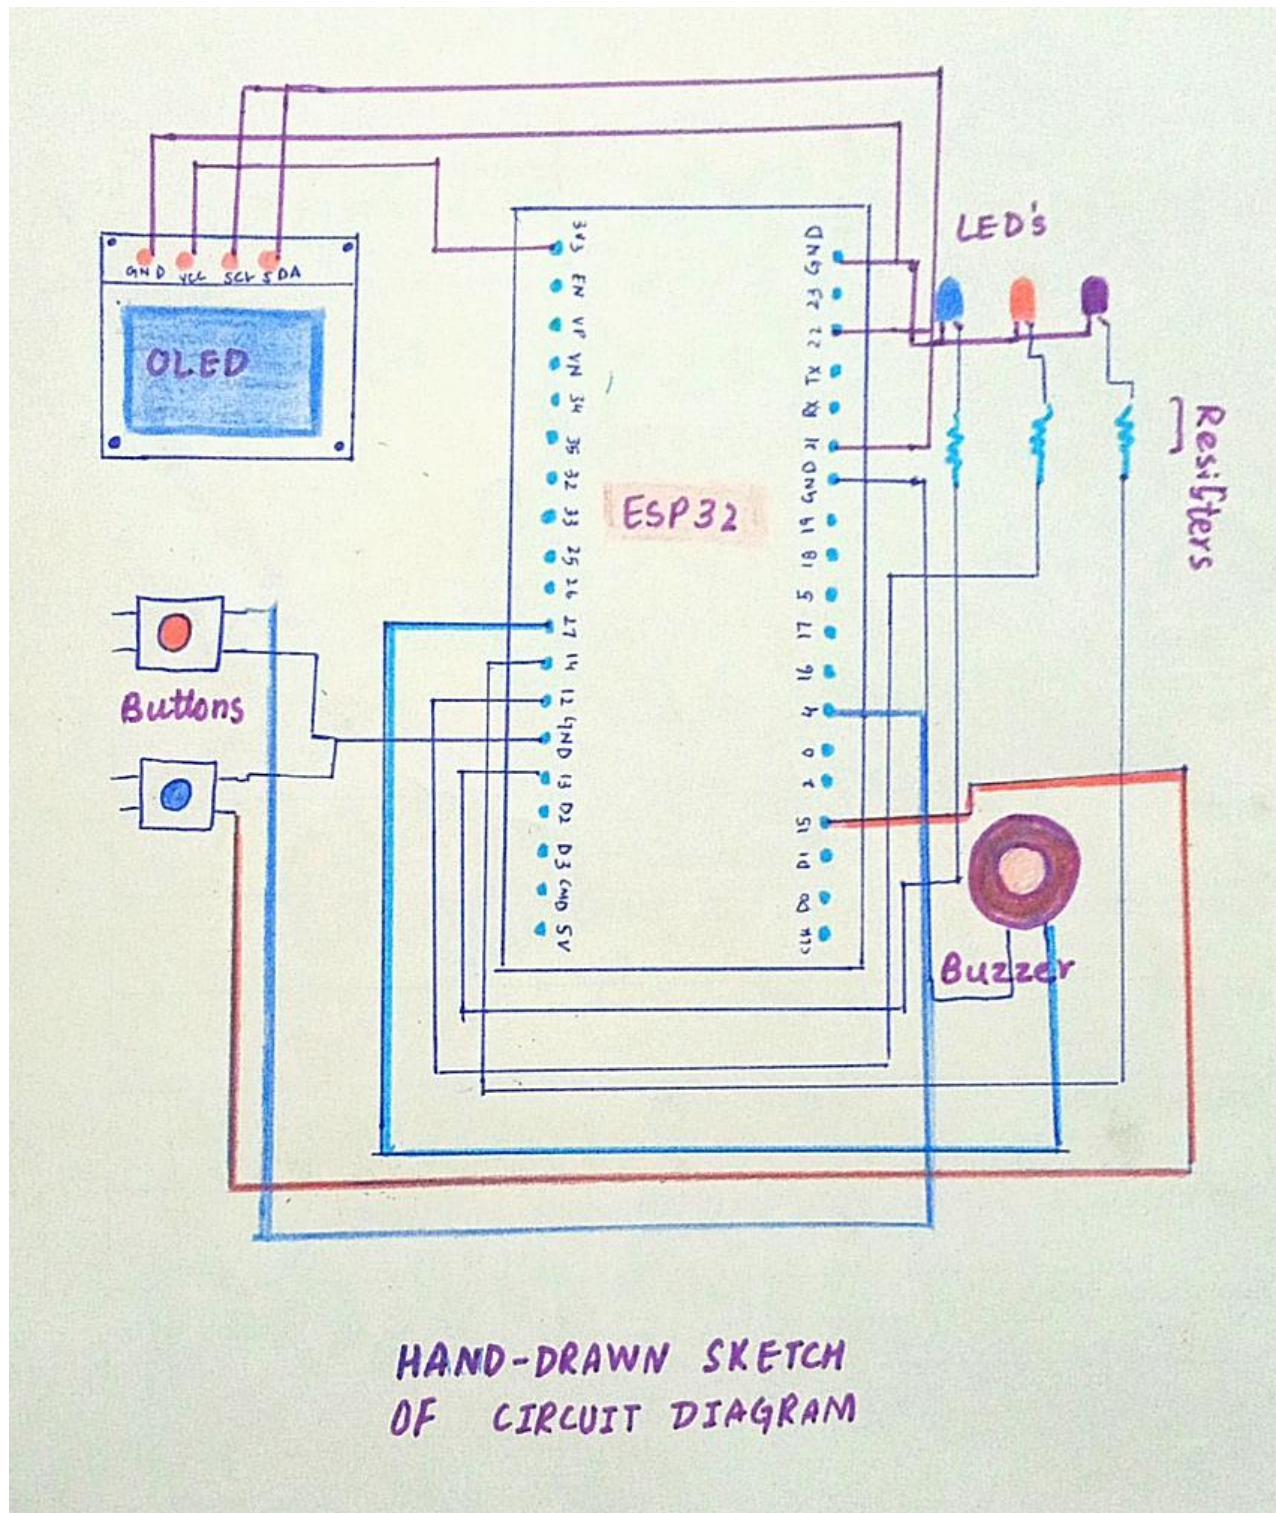 GND VCC SCL SDA
OLED
LED's
Resisters
ESP32
3V3
EN
VP
VN
34
35
32
33
25
26
27
14
12
GND
13
D2
D3
GMD
5V
GND
23
22
TX
RX
21
GND
19
18
5
17
16
4
0
2
15
D1
D0
CLK
Buttons
Buzzer
HAND-DRAWN SKETCH
OF CIRCUIT DIAGRAM